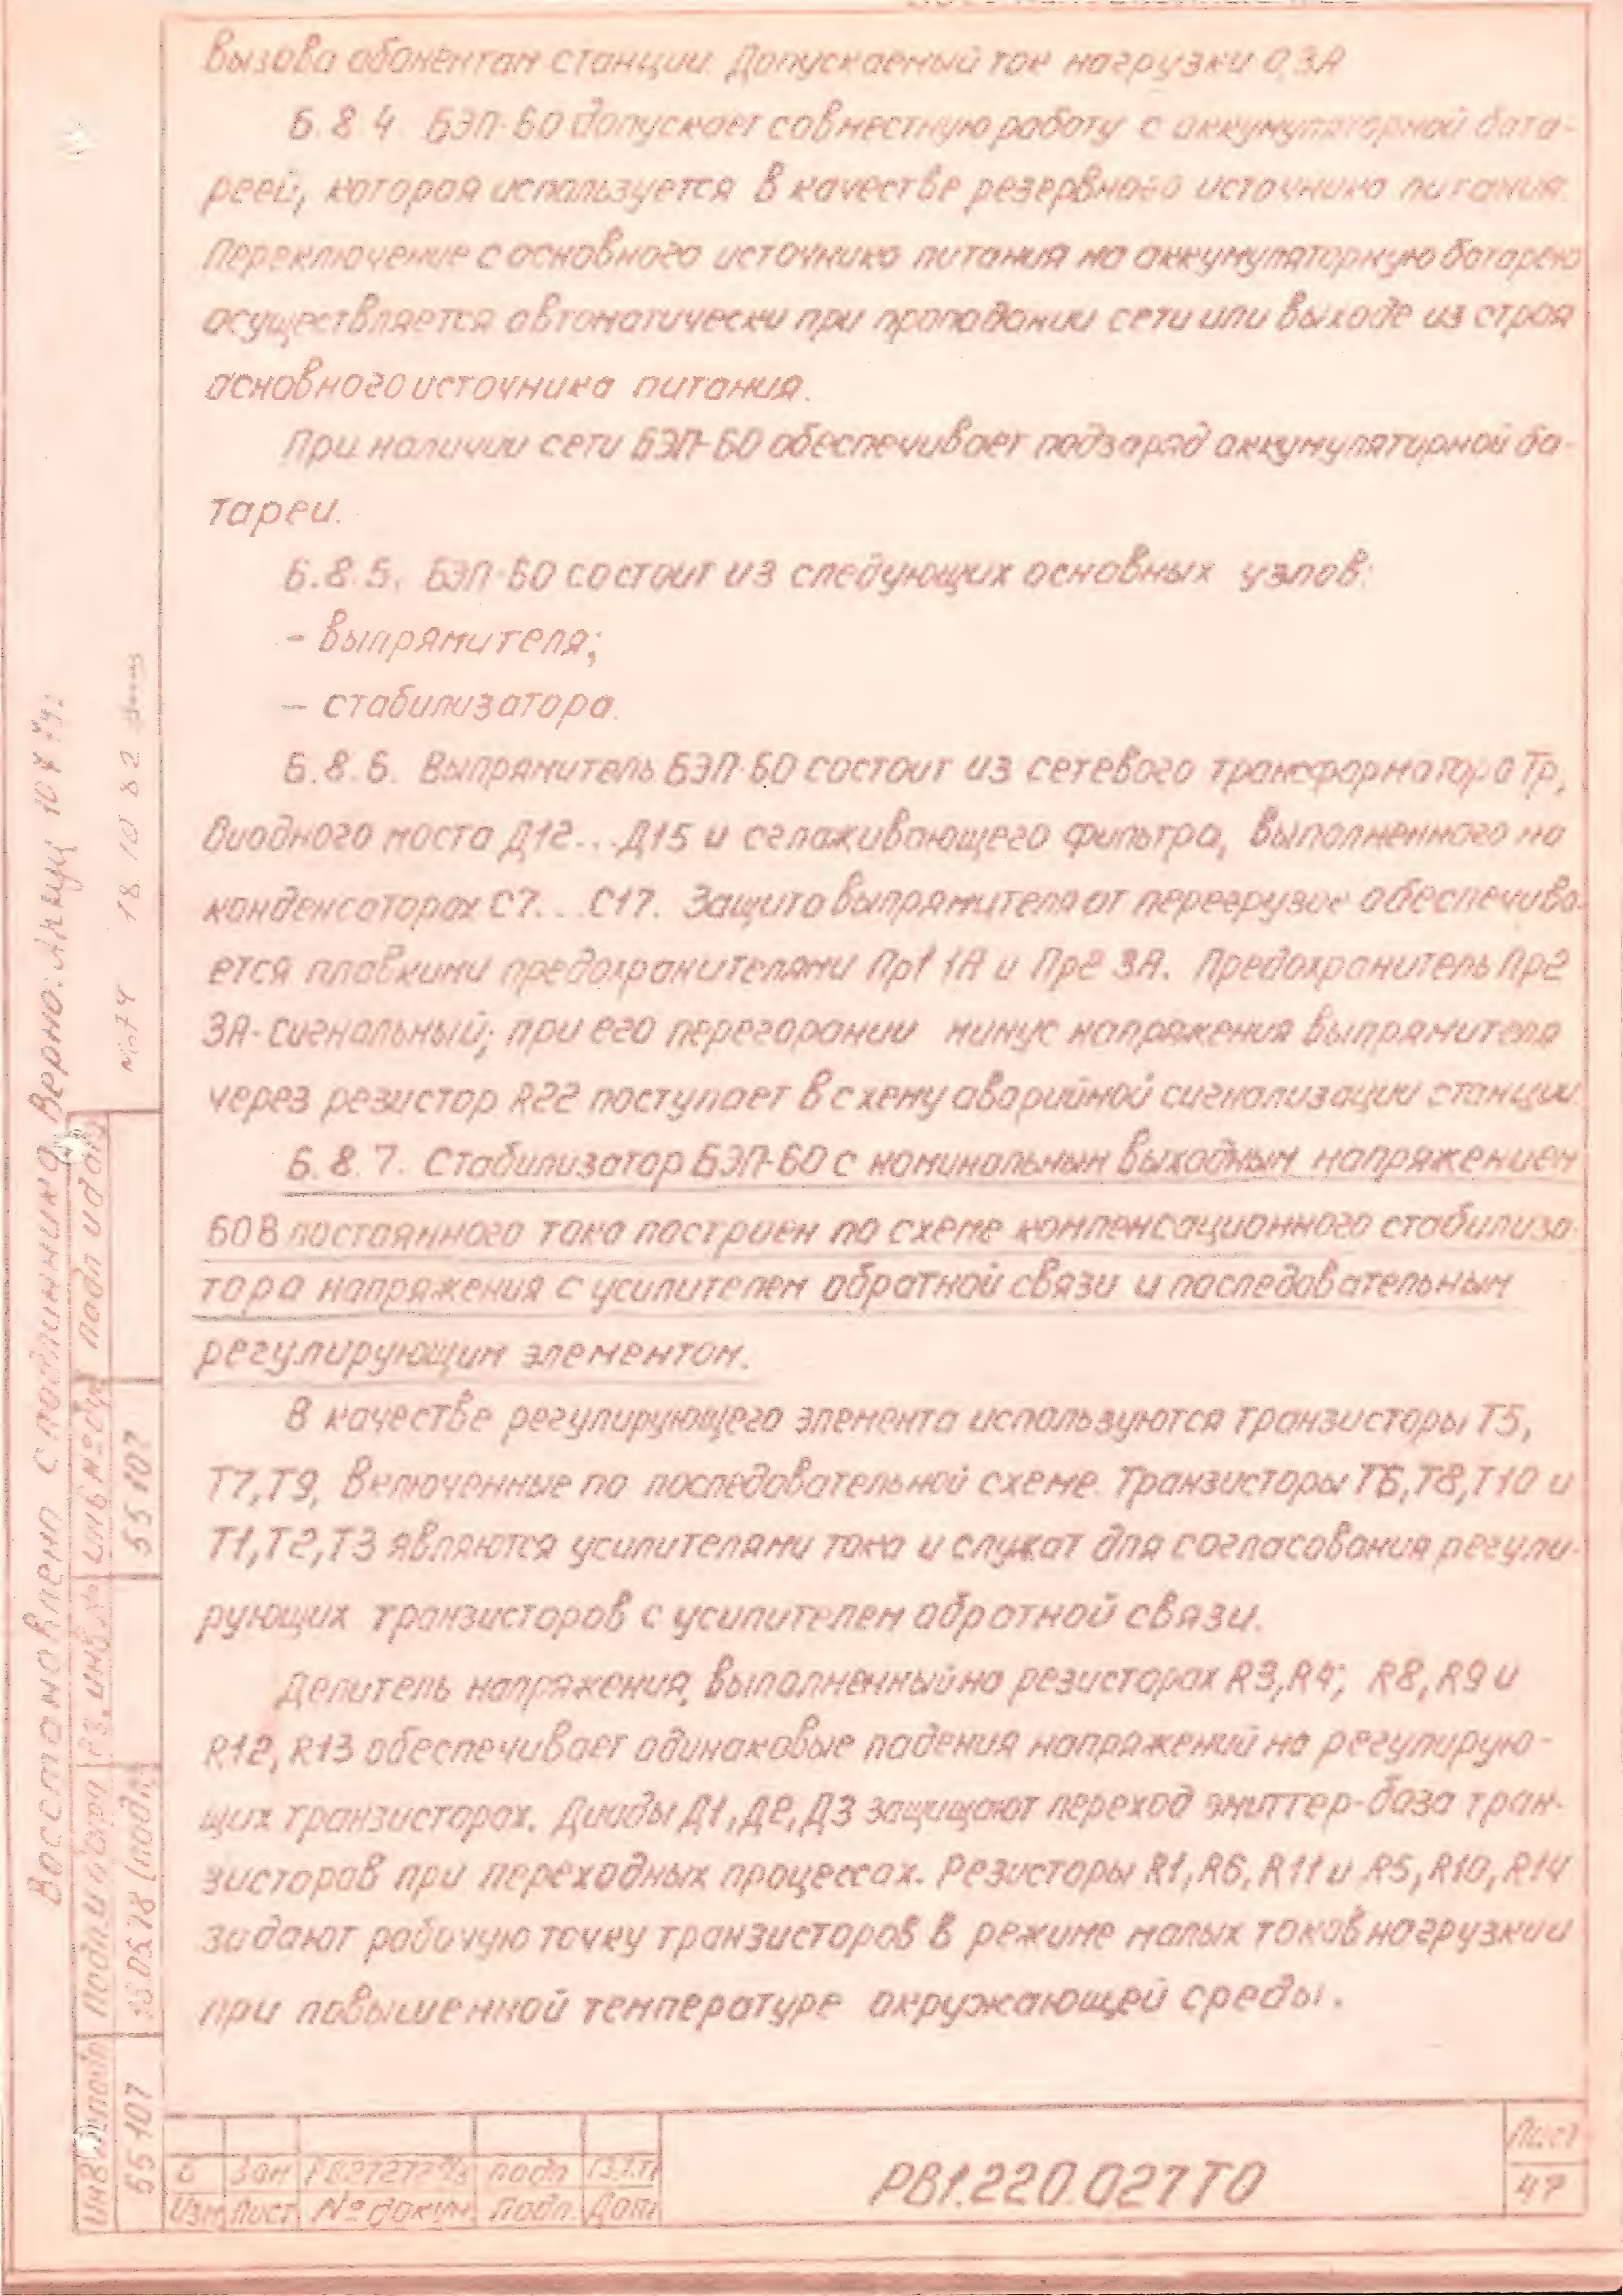 вызова абонентам станции. Допускаемый ток нагрузки 0,3А
6.8.4 БЭП-60 допускает совместную работу с аккумуляторной бата-
реей, которая используется в качестве резервного источника питания.
Переключение с основного источника питания на аккумуляторную батарею
осуществляется автоматически при пропадании сети или выходе из строя
основного источника питания.
При наличии сети БЭП-60 обеспечивает подзаряд аккумуляторной ба-
тареи.
6.8.5. БЭП-60 состоит из следующих основных узлов:
- выпрямителя;
- стабилизатора.
6.8.6. Выпрямитель БЭП-60 состоит из сетевого трансформатора Тр,
диодного моста Д12...Д15 и сглаживающего фильтра, выполненного на
конденсаторах С7...С17. Защита выпрямителя от перегрузок обеспечива-
ется плавкими предохранителями Пр1 1А и Пр2 3А. Предохранитель Пр2
3А-сигнальный; при его перегорании минус напряжения выпрямителя
через резистор R22 поступает в схему аварийной сигнализации станции.
6.8.7. Стабилизатор БЭП-60 с номинальным выходным напряжением
60В постоянного тока построен по схеме компенсационного стабилиза-
тора напряжения с усилителем обратной связи и последовательным
регулирующим элементом.
В качестве регулирующего элемента используются транзисторы Т5,
Т7,Т9, включенные по последовательной схеме. Транзисторы Т6,Т8,Т10 и
Т1,Т2,Т3 являются усилителями тока и служат для согласования регули-
рующих транзисторов с усилителем обратной связи.
Делитель напряжения, выполненный на резисторах R3,R4; R8,R9 и
R12,R13 обеспечивает одинаковые падения напряжений на регулирую-
щих транзисторах. Диоды Д1,Д2,Д3 защищают переход эмиттер-база тран-
зисторов при переходных процессах. Резисторы R1,R6,R11 и R5,R10,R14
задают рабочую точку транзисторов в режиме малых токов нагрузки и
при повышенной температуре окружающей среды.
Восстановлено с подлинника Верно:
18.10.82
подп и дата
инв № дубл
55107
Подп и дата
16.05.78 (подп)
инв № подл
55107
6 Зам подп
Изм Лист № докум Подп. Дата
РВ1.220.027ТО
Лист
47